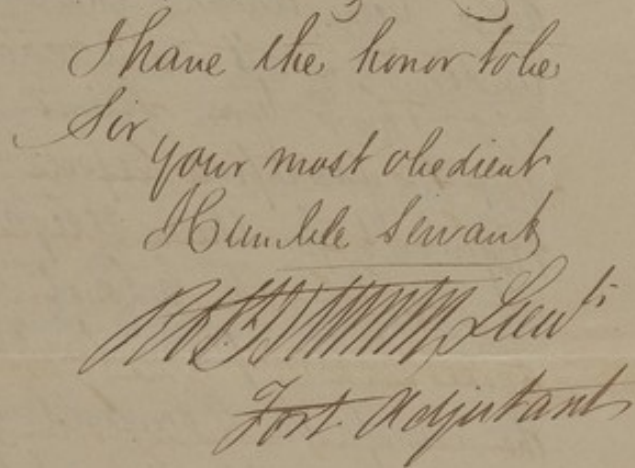 I have the honor to be
Sir
your most obedient
Humble Servant
Lieut
Fort Adjutant